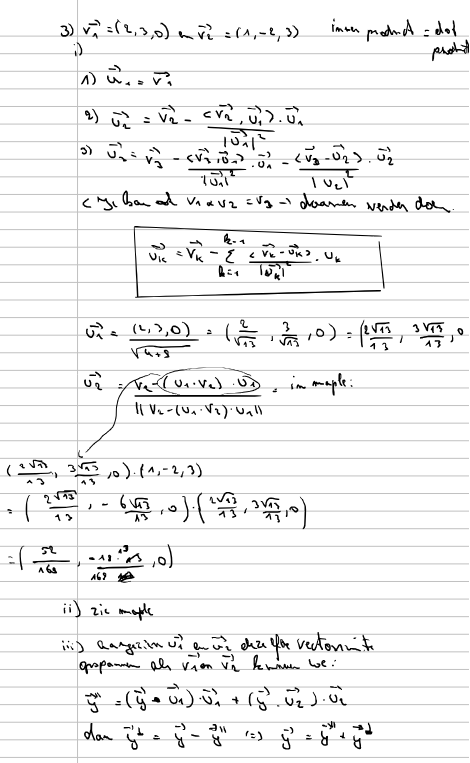 3) v₁ = (2,3,0) en v₂ = (1,-2,3) inner product = dot product
i)
1) u₁ = v₁
2) u₂ = v₂ - <v₂, u₁> / |u₁|² · u₁
3) u₂ = v₃ - <v₃, u₁> / |u₁|² · u₁ - <v₃ - u₂> / |u₂|² · u₂
v₁ × v₂ = v₃ → daarmee verder doen.
u_k = v_k - Σ_{k=1}^{k-1} <v_k - u_k> / |u_k|² · u_k
u₁ = (2,3,0) / √(4+9) = (2/√13, 3/√13, 0) = (2√13/13, 3√13/13, 0
u₂ = v₂ - (u₁·v₂)·u₁ / ||v₂ - (u₁·v₂)·u₁|| , in maple:
(2√13/13, 3√13/13, 0) · (1,-2,3)
= (2√13/13, -6√13/13, 0) · (2√13/13, 3√13/13, 0)
= (52/169, -18·13/169, 0)
ii) zie maple
iii) aangezien u₁ en u₂ dezelfde vectorruimte
opspannen als v₁ en v₂ kunnen we:
y" = (y · u₁)·u₁ + (y · u₂)·u₂
dan y⊥ = y - y" <=> y = y" + y⊥